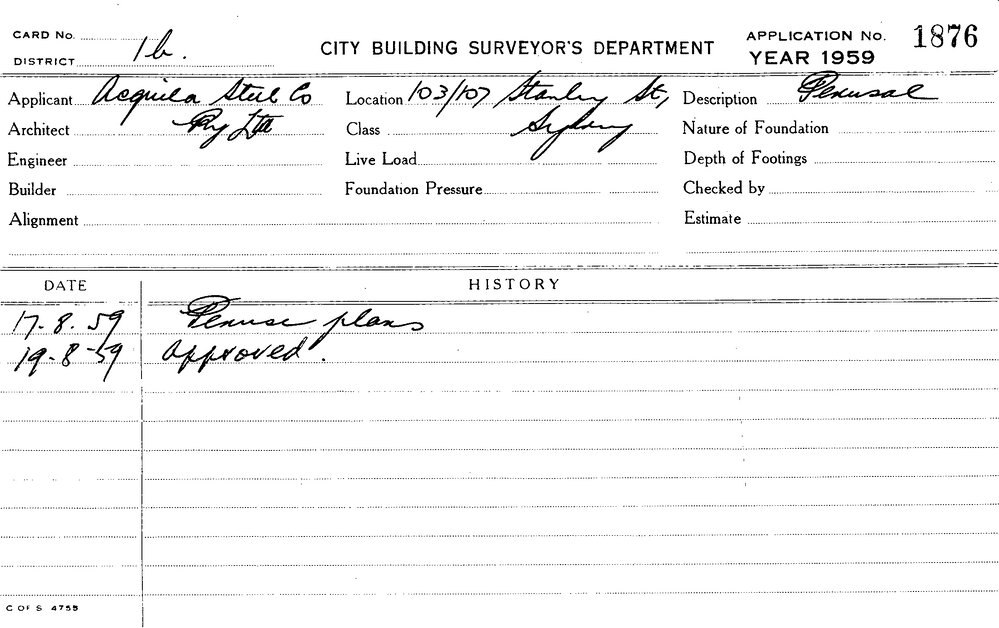 CARD No.
DISTRICT 1b.
CITY BUILDING SURVEYOR'S DEPARTMENT
APPLICATION No. 1876
YEAR 1959
Applicant Acquila Steel Co Location 103/107 Stanley St, Description Perusal
Architect Pty Ltd Class Sydney Nature of Foundation
Engineer Live Load Depth of Footings
Builder Foundation Pressure Checked by
Alignment Estimate
DATE HISTORY
17. 8. 59 Peruse plans
19-8-59 approved.
C OF S. 4755